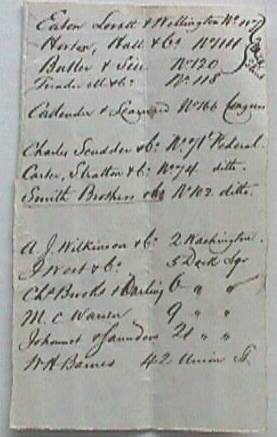 Eaton Lovett & Wellington No. 117
Horton, Hall & Co. No 111
Butler & Sise No 120
& Co. No 118
& No 166 Congress
Charles Scudder & Co. No 71 Federal.
Carter, Stratton & Co. No 74 ditto.
Smith Brothers & Co No 102 ditto.
A. J. Wilkinson & Co. 2 Washington.
J West & Co. 5 Dock Sqr
Chs Brooks & Darling 6 " "
M. C. Warren 9 " "
Johonnot & Saunders 21 " "
W H Barnes 42 Union St.